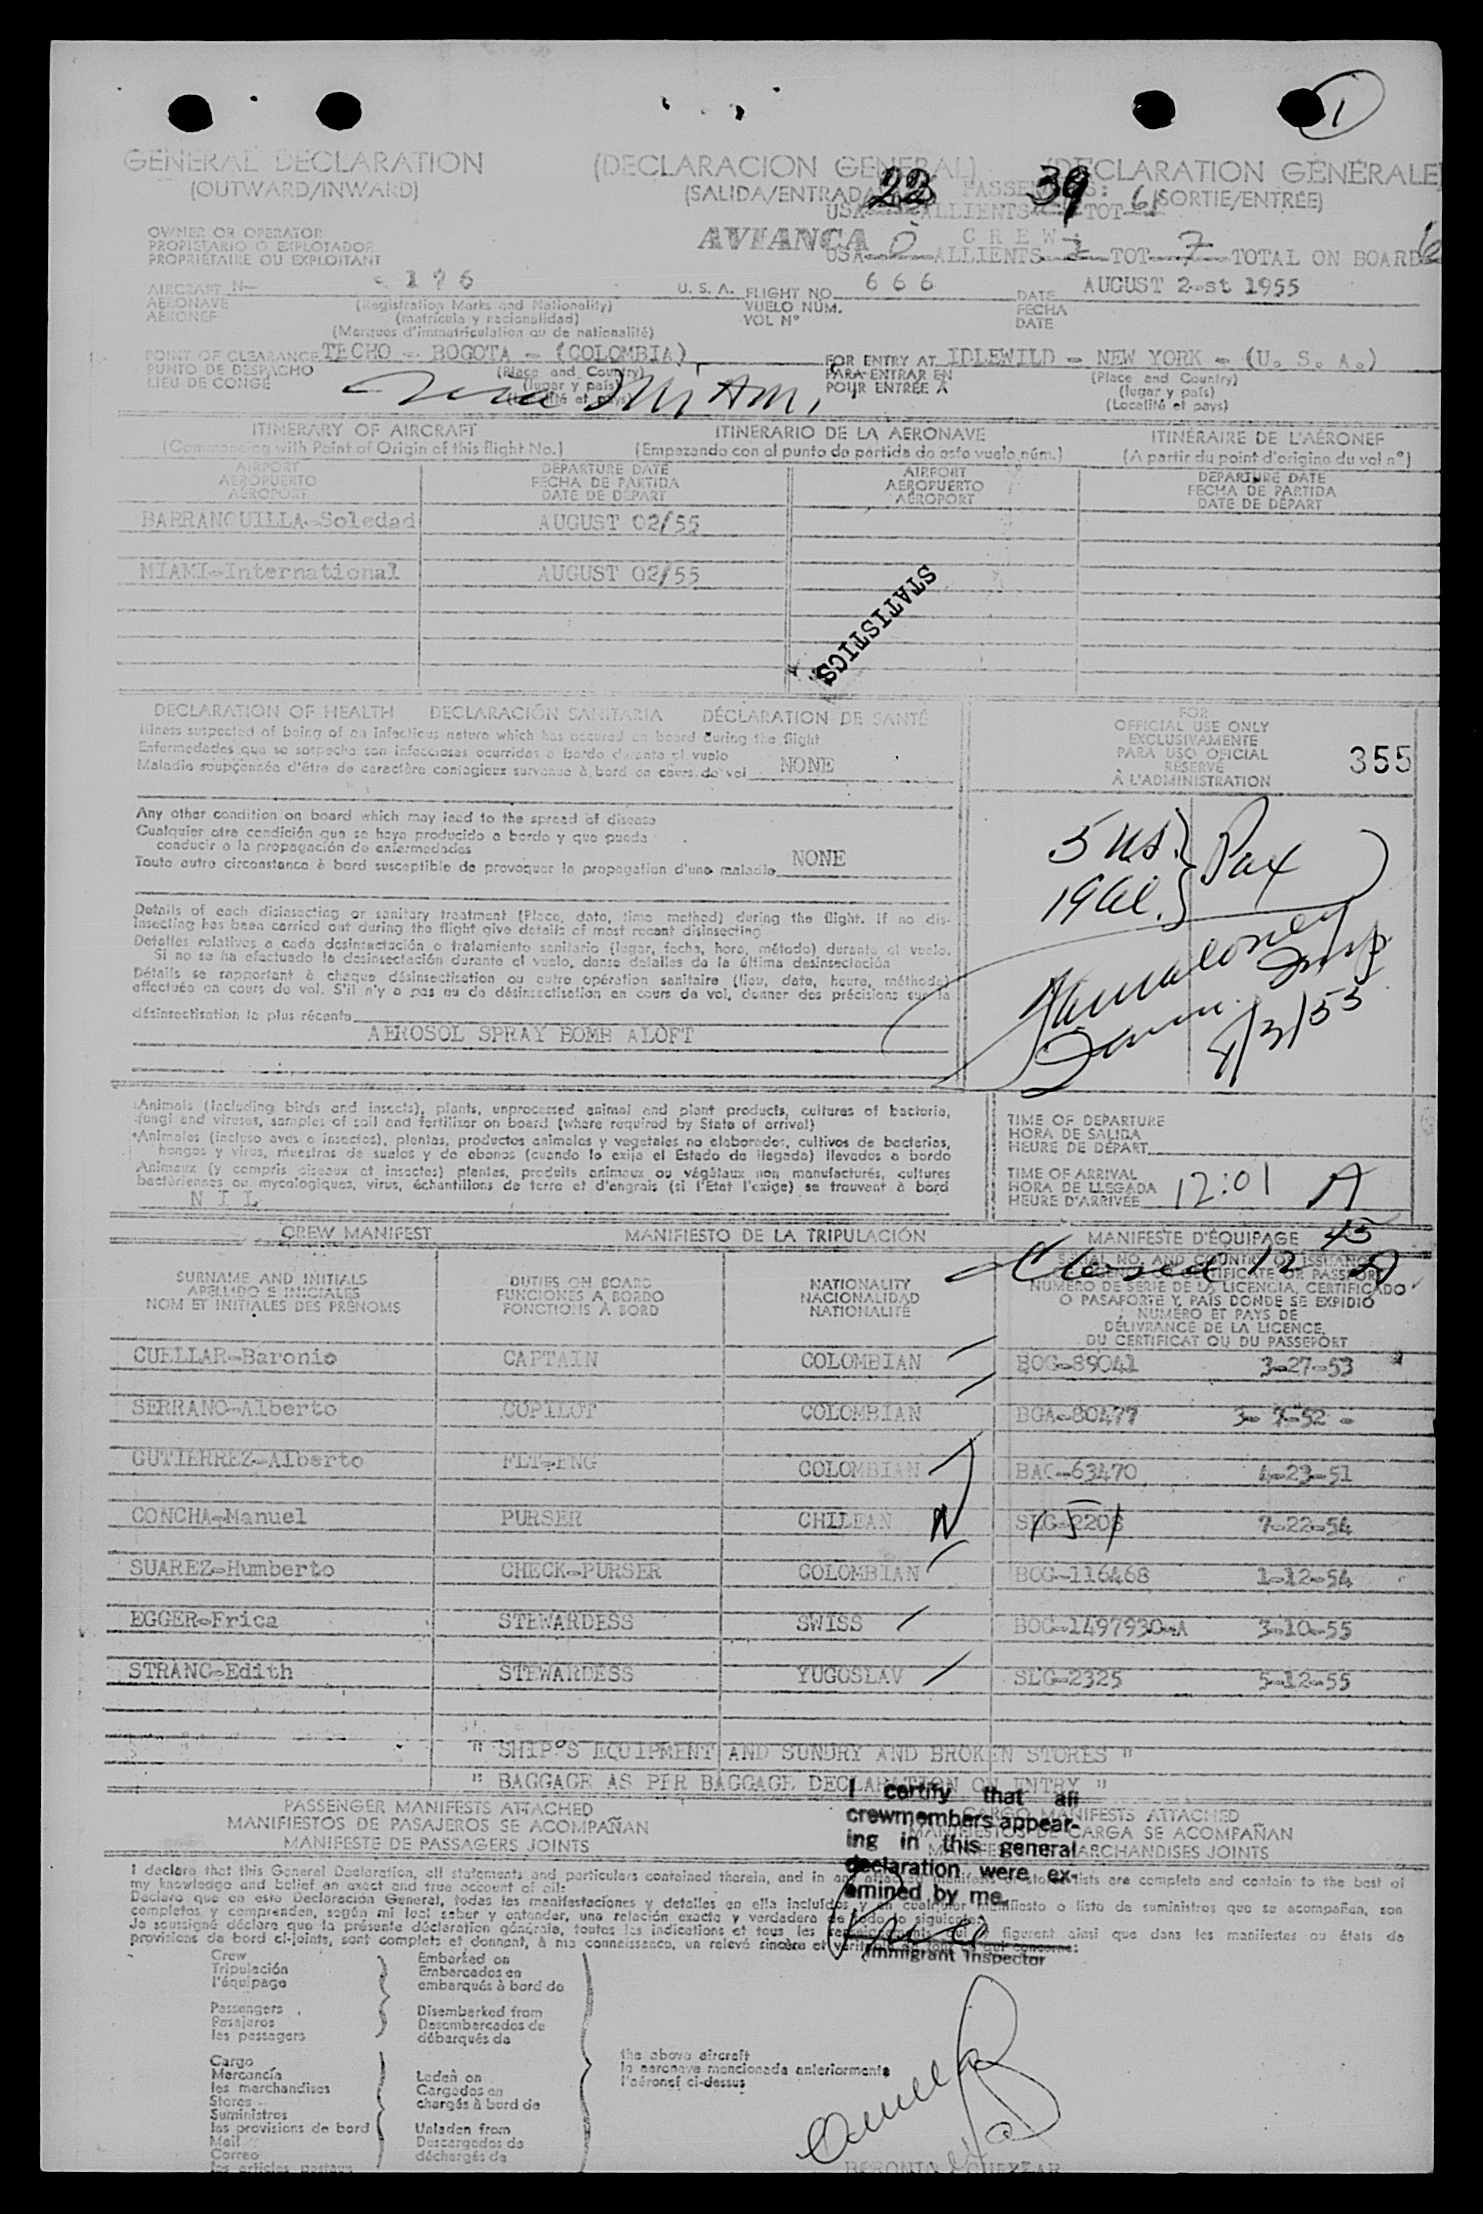 1
GENERAL DECLARATION
(OUTWARD/INWARD)
(DECLARACION GENERAL)
(SALIDA/ENTRADA
(DECLARATION GÉNÉRALE
(SORTIE/ENTRÉE)
PASSENGERS:
USA 22 ALLIENTS 39 TOT 61
OWNER OR OPERATOR
PROPIETARIO O EXPLOTADOR
PROPRIÉTAIRE OU EXPLOITANT
AVIANCA
CREW:
USA 0 ALLIENTS 7 TOT 7 TOTAL ON BOARD
AIRCRAFT N- 196 U. S. A.
AERONAVE
AÉRONEF
(Registration Marks and Nationality)
(matrícula y nacionalidad)
(Marques d'immatriculation ou de nationalité)
FLIGHT NO. 666
VUELO NÚM.
VOL Nº
DATE AUGUST 2-st 1955
FECHA
DATE
POINT OF CLEARANCE TECHO - BOGOTA - (COLOMBIA)
PUNTO DE DESPACHO
LIEU DE CONGÉ
(Place and Country)
(lugar y país)
Miami
FOR ENTRY AT IDLEWILD - NEW YORK - (U. S. A.)
PARA ENTRAR EN
POUR ENTRÉE A
(Place and Country)
(lugar y país)
(Localité et pays)
ITINERARY OF AIRCRAFT
(Commencing with Point of Origin of this flight No.)
ITINERARIO DE LA AERONAVE
(Empezando con el punto de partida de este vuelo núm.)
ITINÉRAIRE DE L'AÉRONEF
(A partir du point d'origine du vol nº)
AIRPORT
AEROPUERTO
AÉROPORT
DEPARTURE DATE
FECHA DE PARTIDA
DATE DE DÉPART
AIRPORT
AEROPUERTO
AÉROPORT
DEPARTURE DATE
FECHA DE PARTIDA
DATE DE DÉPART
BARRANQUILLA-Soledad AUGUST 02/55
MIAMI-International AUGUST 02/55
STATISTICS
DECLARATION OF HEALTH DECLARACIÓN SANITARIA DÉCLARATION DE SANTÉ
Illness suspected of being of an infectious nature which has occured on board during the flight
Enfermedades que se sospecha son infecciosas ocurridas a bordo durante el vuelo
Maladie soupçonnée d'être de caractère contagieux survenue à bord en cours de vol NONE
Any other condition on board which may lead to the spread of disease
Cualquier otra condición que se haya producido a bordo y que pueda
conducir a la propagación de enfermedades
Toute autre circonstance à bord susceptible de provoquer la propagation d'une maladie NONE
Details of each disinsecting or sanitary treatment (Place, date, time method) during the flight. If no dis-
insecting has been carried out during the flight give details of most recent disinsecting
Detalles relativos a cada desinsectación o tratamiento sanitario (lugar, fecha, hora, método) durante el vuelo.
Si no se ha efectuado la desinsectación durante el vuelo, danse detalles de la última desinsectación
Détails se rapportant à chaque désinsectisation ou autre opération sanitaire (lieu, date, heure, méthode)
effectuée en cours de vol. S'il n'y a pas eu de désinsectisation en cours de vol, donner des précisions sur la
désinsectisation la plus récente
AEROSOL SPRAY BOMB ALOFT
FOR
OFFICIAL USE ONLY
EXCLUSIVAMENTE
PARA USO OFICIAL
RESERVÉ
À L'ADMINISTRATION
355
5 US. } Pax
19 Al.
Insp
8/3/55
Animals (including birds and insects), plants, unprocessed animal and plant products, cultures of bacteria,
fungi and viruses, samples of soil and fertilizer on board (where required by State of arrival)
Animales (incluso aves e insectos), plantas, productos animales y vegetales no elaborados, cultivos de bacterias,
hongos y virus, muestras de suelos y de abonos (cuando lo exija el Estado de llegada) llevados a bordo
Animaux (y compris oiseaux et insectes) plantes, produits animaux ou végétaux non manufacturés, cultures
bactériennes ou mycologiques, virus, échantillons de terre et d'engrais (si l'Etat l'exige) se trouvent à bord
N I L
TIME OF DEPARTURE
HORA DE SALIDA
HEURE DE DÉPART
TIME OF ARRIVAL
HORA DE LLEGADA
HEURE D'ARRIVÉE
12:01 A
CREW MANIFEST MANIFIESTO DE LA TRIPULACIÓN MANIFESTE D'ÉQUIPAGE
Closed 12 45 A
SURNAME AND INITIALS
APELLIDO E INICIALES
NOM ET INITIALES DES PRÉNOMS
DUTIES ON BOARD
FUNCIONES A BORDO
FONCTIONS À BORD
NATIONALITY
NACIONALIDAD
NATIONALITÉ
SERIAL NO. AND COUNTRY OF ISSUANCE
CERTIFICATE OR PASSPORT
NUMERO DE SERIE DE LA LICENCIA, CERTIFICADO
O PASAPORTE Y PAÍS DONDE SE EXPIDIÓ
NUMÉRO ET PAYS DE
DÉLIVRANCE DE LA LICENCE,
DU CERTIFICAT OU DU PASSEPORT
CUELLAR-Baronio CAPTAIN COLOMBIAN BOG-89041 3-27-53
SERRANO-Alberto COPILOT COLOMBIAN BGA-80477 3- 7-52
GUTIERREZ-Alberto FLT-ENG COLOMBIAN BAC-63470 4-23-51
CONCHA-Manuel PURSER CHILEAN N SLG-2208 7-22-54
SUAREZ-Humberto CHECK-PURSER COLOMBIAN BOG-116468 1-12-54
EGGER-Erica STEWARDESS SWISS BOG-1497930-A 3-10-55
STRANC-Edith STEWARDESS YUGOSLAV SLG-2325 5-12-55
" SHIP'S EQUIPMENT AND SUNDRY AND BROKEN STORES "
" BAGGAGE AS PER BAGGAGE DECLARATION ON ENTRY "
PASSENGER MANIFESTS ATTACHED
MANIFIESTOS DE PASAJEROS SE ACOMPAÑAN
MANIFESTE DE PASSAGERS JOINTS
CARGO MANIFESTS ATTACHED
MANIFIESTOS DE CARGA SE ACOMPAÑAN
MARCHANDISES JOINTS
I certify that all
crewmembers appear-
ing in this general
declaration were ex-
amined by me.
Immigrant Inspector
I declare that this General Declaration, all statements and particulars contained therein, and in any attached manifests or stores lists are complete and contain to the best of
my knowledge and belief an exact and true account of all:
Declaro que en esta Declaración General, todas las manifestaciones y detalles en ella incluídos y en cualquier manifiesto o lista de suministros que se acompañan, son
completos y comprenden, según mi leal saber y entender, una relación exacta y verdadera de todo lo siguiente:
Je soussigné déclare que la présente déclaration générale, toutes les indications et tous les renseignements qui y figurent ainsi que dans les manifestes ou états de
provisions de bord ci-joints, sont complets et donnent, à ma connaissance, un relevé sincère et véritable de tout ce qui concerne:
Crew
Tripulación
l'équipage
Passengers
Pasajeros
les passagers
Embarked on
Embarcados en
embarqués à bord de
Disembarked from
Desembarcados de
débarqués de
Cargo
Mercancía
les marchandises
Stores
Suministros
les provisions de bord
Mail
Correo
les articles postaux
Laden on
Cargados en
chargés à bord de
Unladen from
Descargados de
déchargés de
the above aircraft
la aeronave mencionada anteriormente
l'aéronef ci-dessus
BERONIO CUELLAR